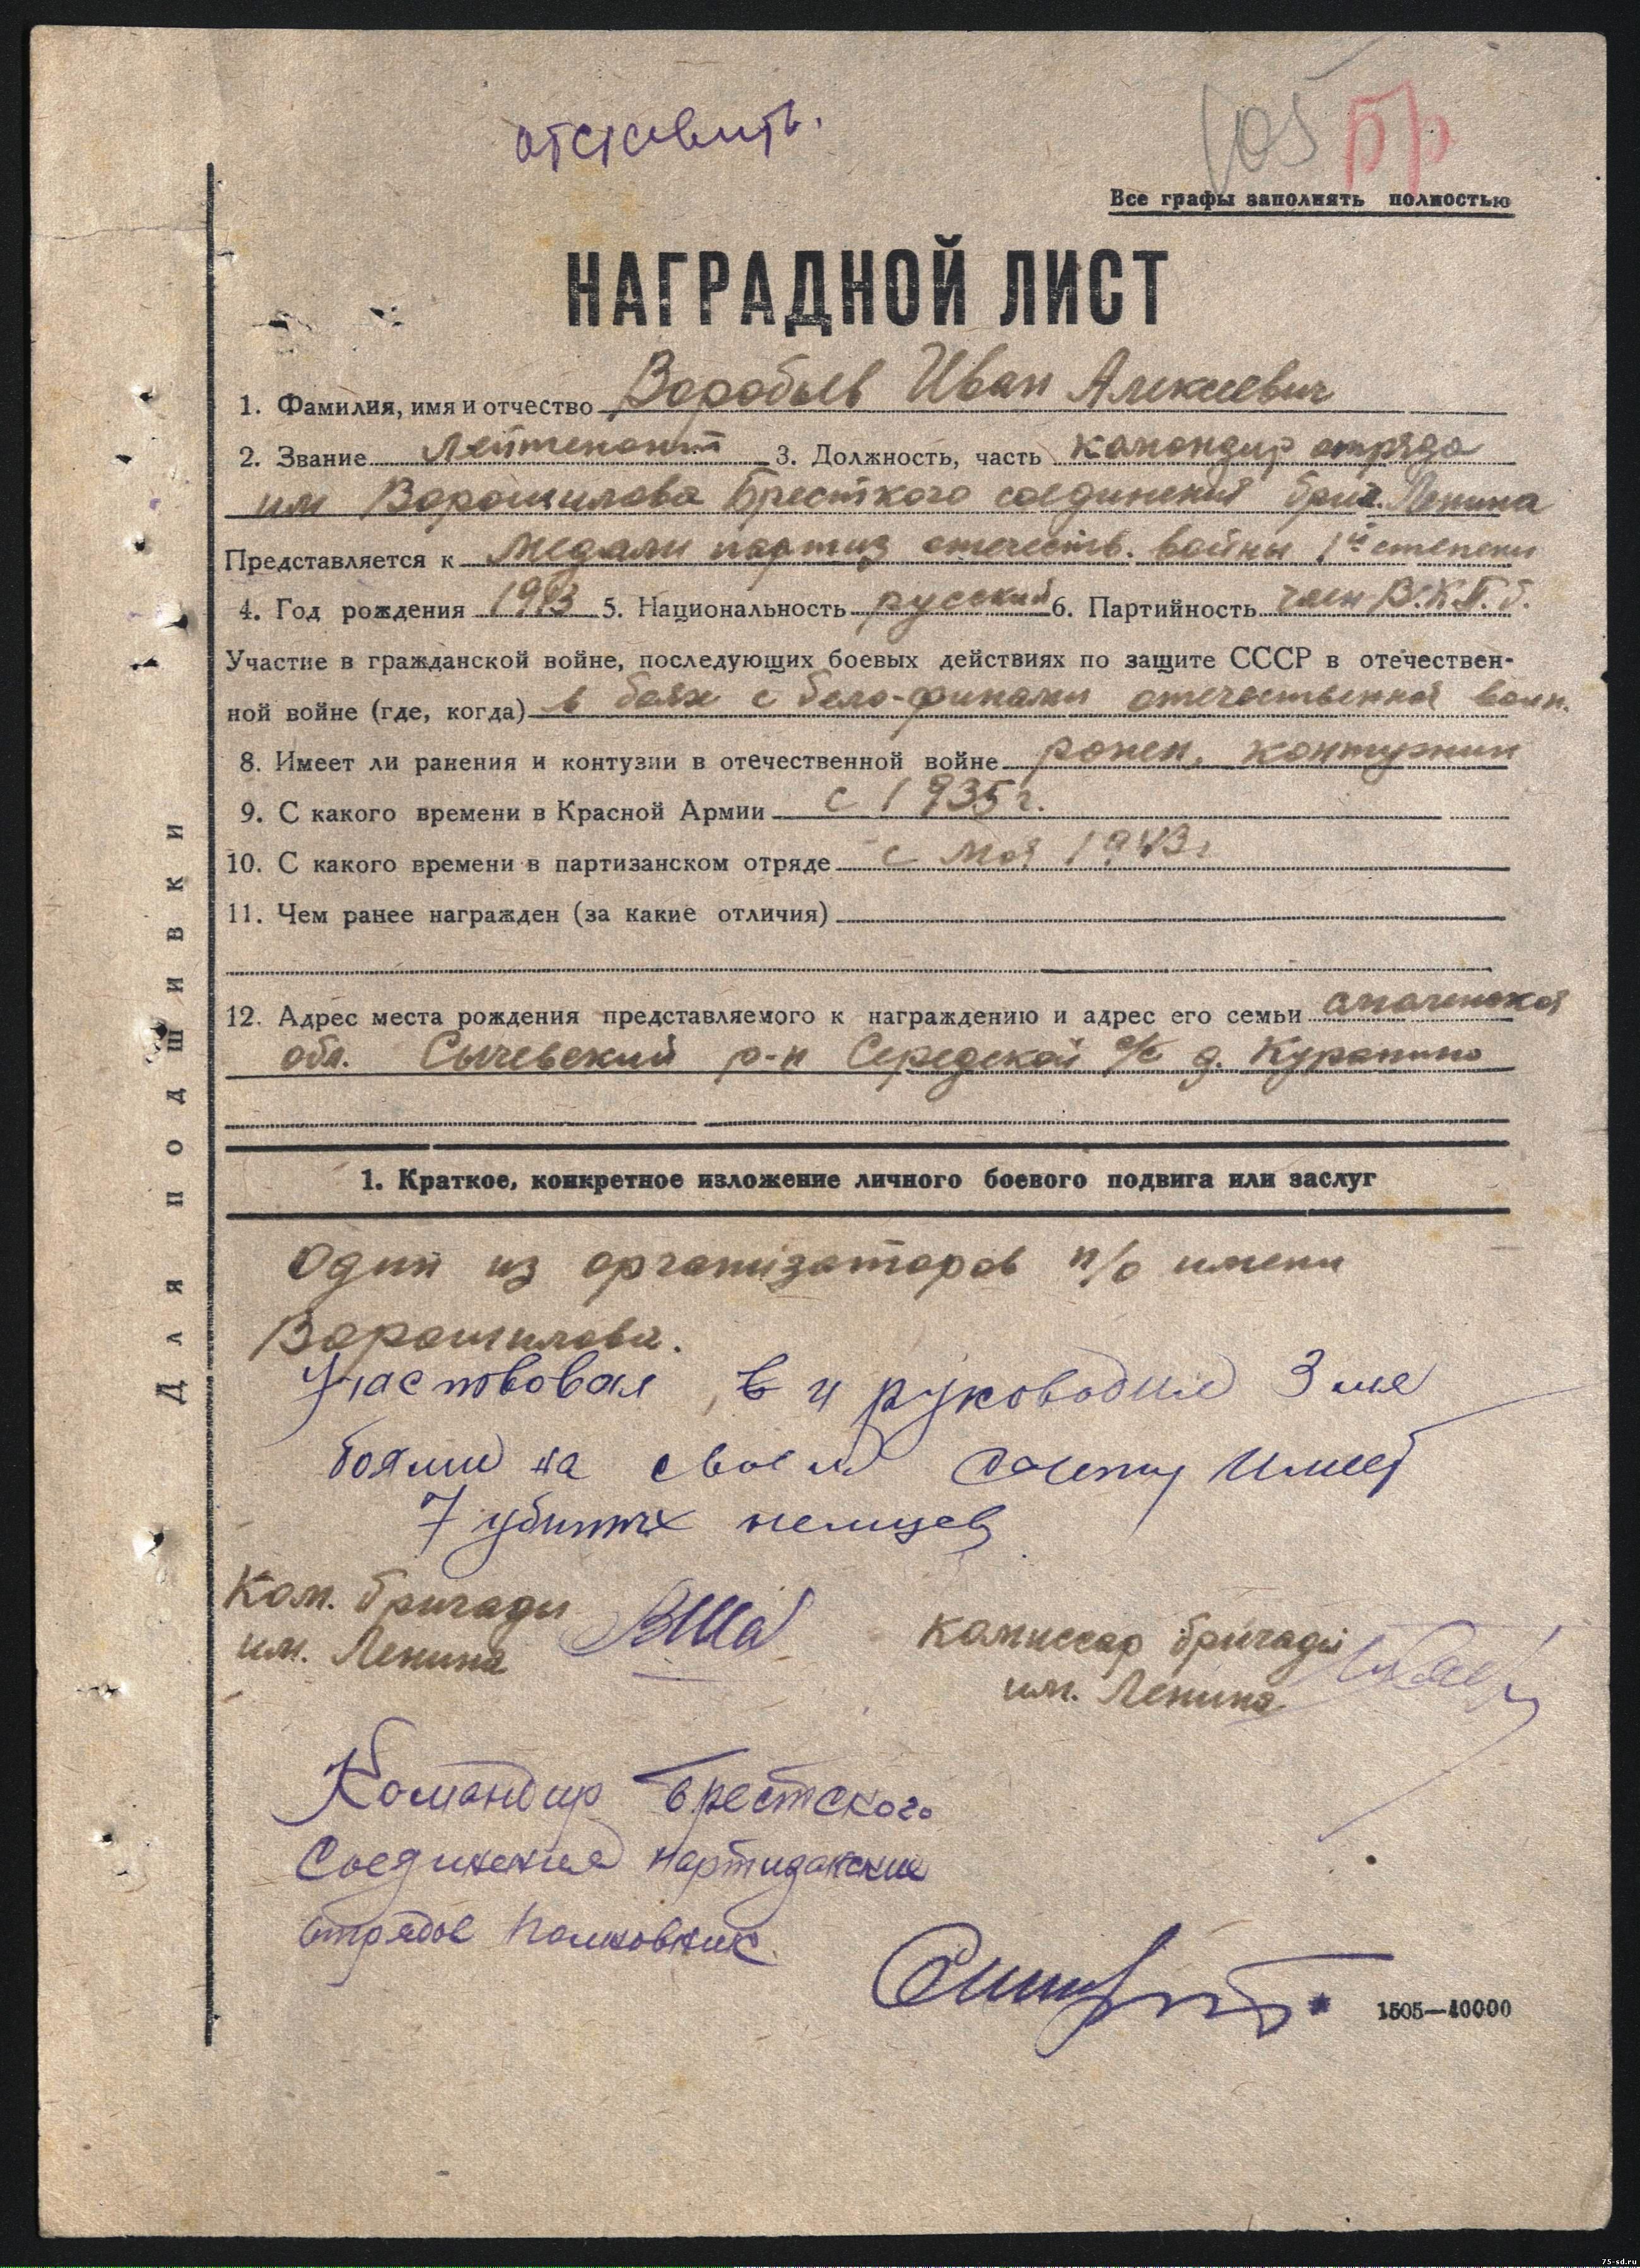 отставить.
105 Бр
Все графы заполнять полностью
НАГРАДНОЙ ЛИСТ
1. Фамилия, имя и отчество Воробьев Иван Алексеевич
2. Звание Лейтенант 3. Должность, часть командир отряда
им Ворошилова Брестского соединения бриг. Ленина
Представляется к медали партиз отечеств. войны 1й степени
4. Год рождения 1913 5. Национальность русский 6. Партийность член В.К.П.б.
Участие в гражданской войне, последующих боевых действиях по защите СССР в отечествен-
ной войне (где, когда) в боях с бело-финами отечественной воин.
8. Имеет ли ранения и контузии в отечественной войне ранен, контужин
9. С какого времени в Красной Армии с 1935 г.
10. С какого времени в партизанском отряде с мая 1943 г
11. Чем ранее награжден (за какие отличия)
12. Адрес места рождения представляемого к награждению и адрес его семьи смоленской
обл. Сычевский р-н Середской с/с д. Куракино
1. Краткое, конкретное изложение личного боевого подвига или заслуг
Один из организаторов п/о имени
Ворошилова.
Участвовал в и руководил 3 мя
боями на своем счету имеет
7 убитых немцев
Ком. бригады
им. Ленина
Комиссар бригады
им. Ленина
Командир Брестского
Соединения партизанских
отрядов полковник
1505—40000
Для подшивки
75-sd.ru